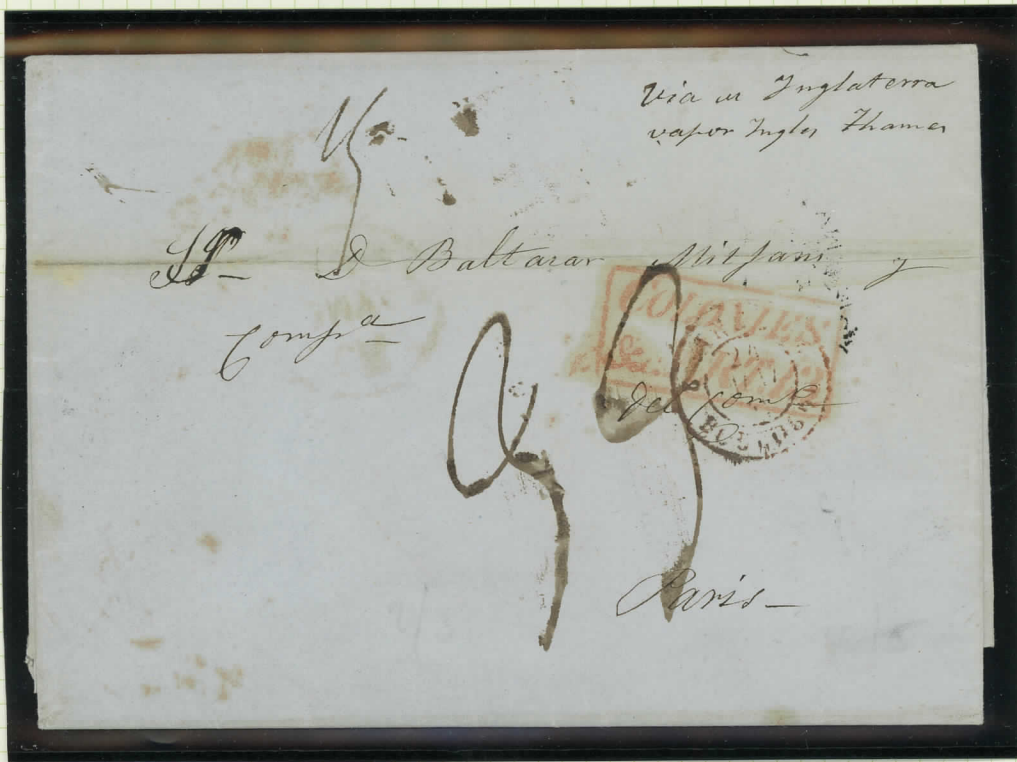 Via de Inglaterra
vapor Ingles Thames
Srs D Baltazar Mitjans y
Compa
COLONIES
&c. ART.
del Comº
BOULOGNE
Paris